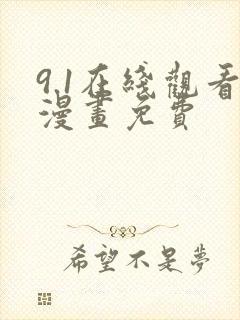 91在綫觀看
漫畫免費
希望不是夢